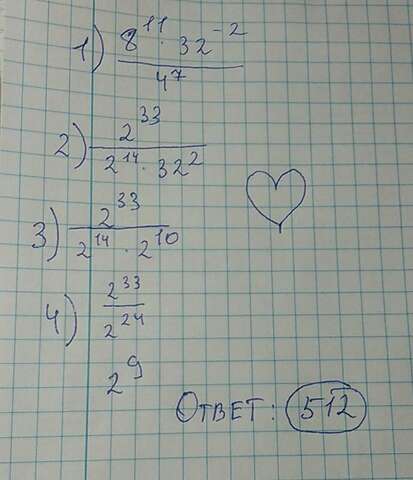 1) 8^11 · 32^-2 / 4^7
2) 2^33 / 2^14 · 32^2
3) 2^33 / 2^14 · 2^10
4) 2^33 / 2^24
2^9
Ответ: 512